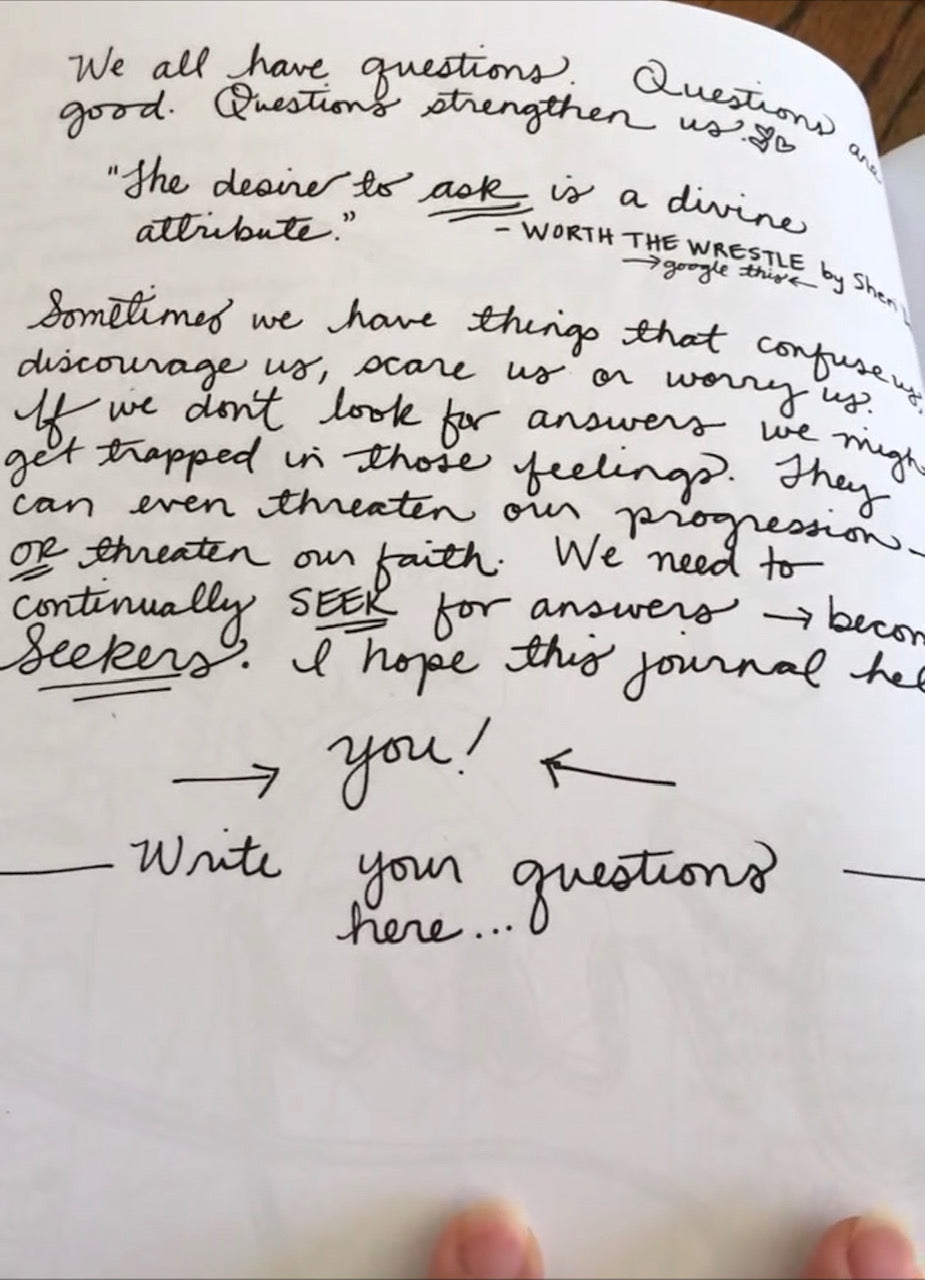 We all have questions. Questions are
good. Questions strengthen us.
"The desire to ask is a divine
attribute."
- WORTH THE WRESTLE by Sheri
→google this←
Sometimes we have things that confuse us,
discourage us, scare us or worry us.
If we don't look for answers we migh
get trapped in those feelings. They
can even threaten our progression -
OR threaten our faith. We need to
continually SEEK for answers → becom
Seekers. I hope this journal hel
→ you! ←
Write your questions
here...